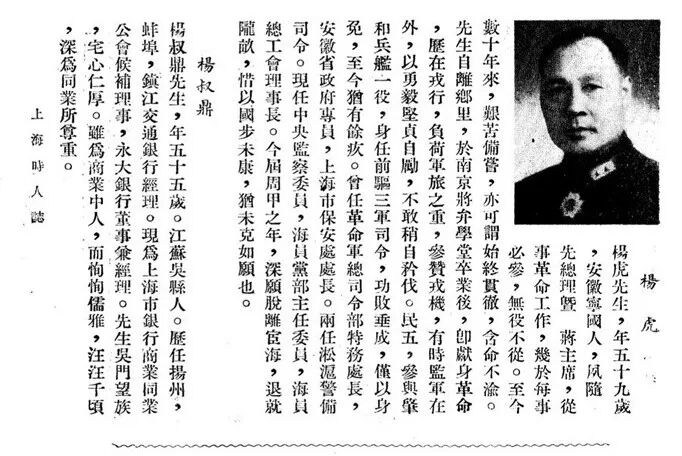 楊虎
楊虎先生，年五十九歲
，安徽寧國人，夙隨
先總理曁　蔣主席，從
事革命工作，幾於每事
必參，無役不從。至今
數十年來，艱苦備嘗，亦可謂始終貫徹，含命不渝。
先生自離鄕里，於南京將弁學堂卒業後，卽獻身革命
，歷在戎行，負荷軍旅之重，參贊戎機，有時監軍在
外，以勇毅堅貞自勵，不敢稍自矜伐。民五，參與肇
和兵艦一役，身任前驅三軍司令，功敗垂成，僅以身
免，至今猶有餘疚。曾任革命軍總司令部特務處長，
安徽省政府專員，上海市保安處處長。兩任淞滬警備
司令。現任中央監察委員，海員黨部主任委員，海員
總工會理事長。今屆周甲之年，深願脫離宦海，退就
隴畝，惜以國步未康，猶未克如願也。
楊叔鼎
楊叔鼎先生，年五十五歲。江蘇吳縣人。歷任揚州，
蚌埠，鎭江交通銀行經理。現爲上海市銀行商業同業
公會候補理事，永大銀行董事兼經理。先生吳門望族
，宅心仁厚。雖爲商業中人，而恂恂儒雅，汪汪千頃
，深爲同業所尊重。
上海時人誌